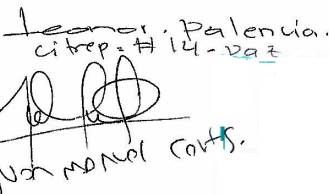 Leonor. Palencia.
citrep. # 14-vaz
Manuel Cortés.